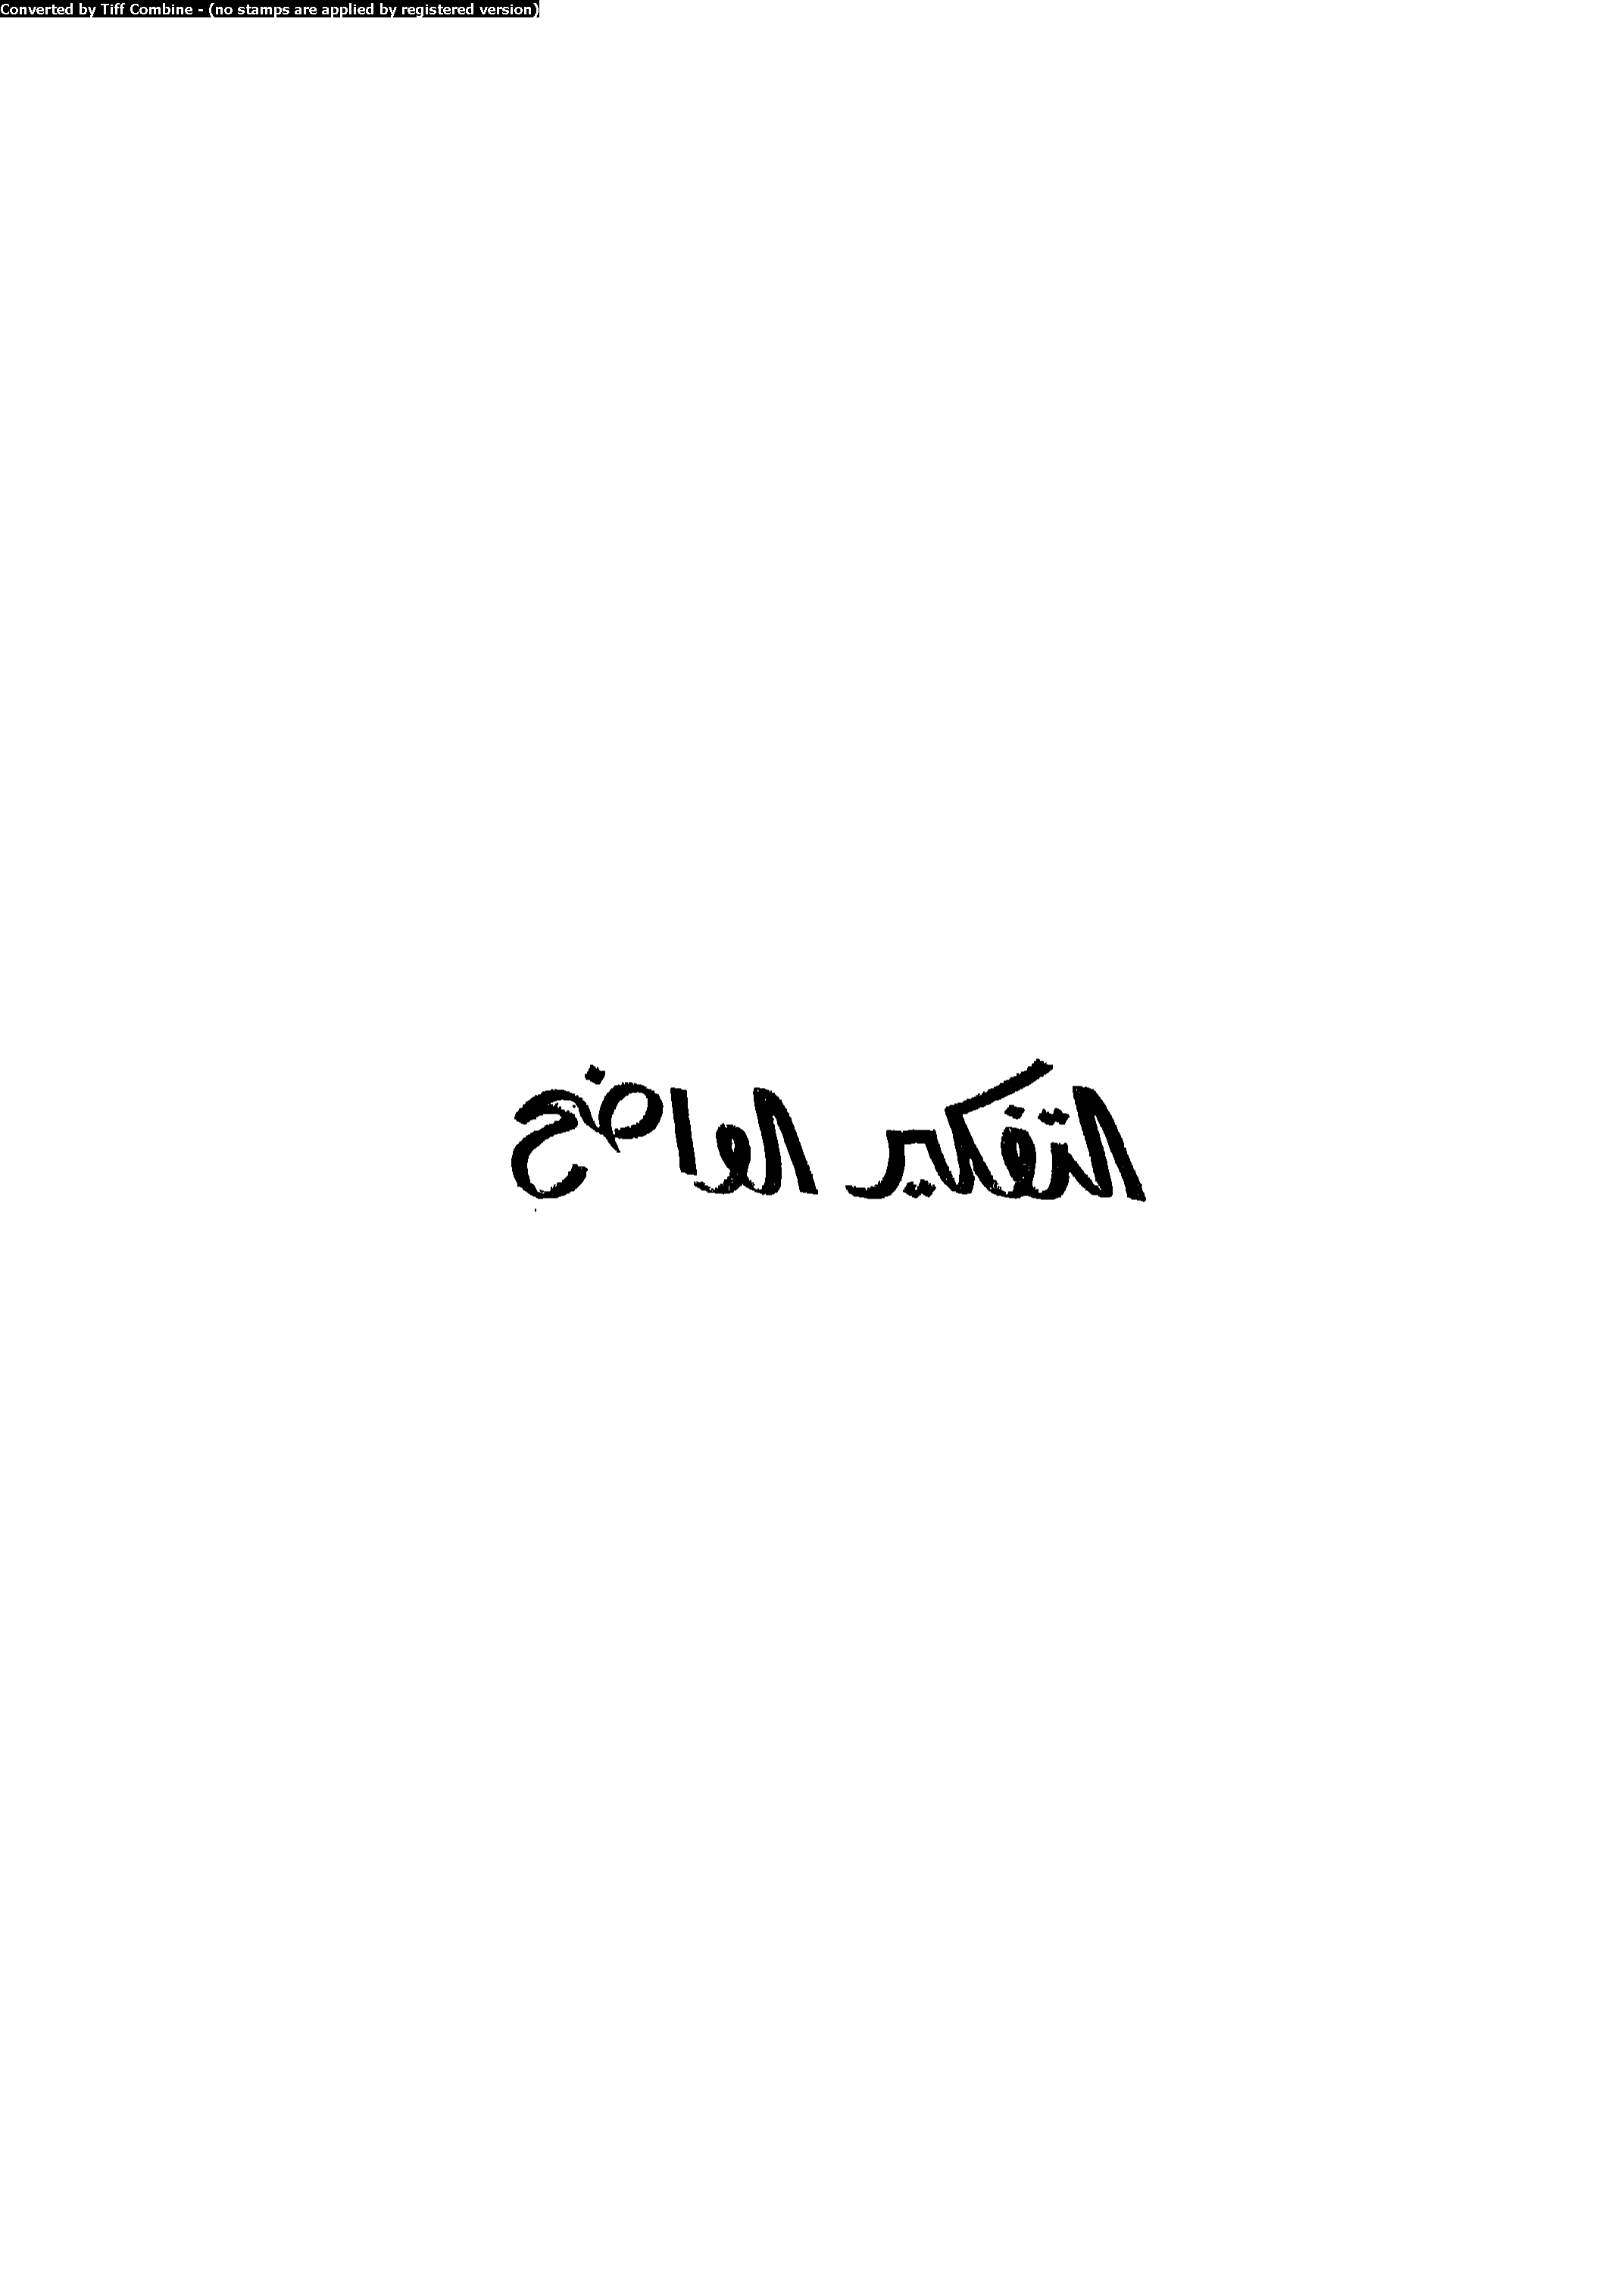 Converted by Tiff Combine - (no stamps are applied by registered version)
التفكير الواضح